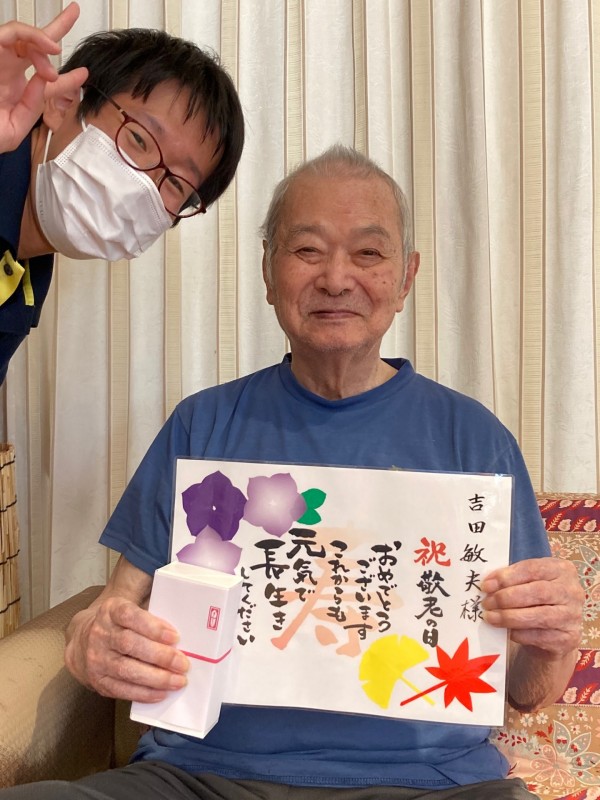 吉田敏夫様
祝敬老の日
おめでとう
ございます
これからも
元気で
長生き
してください
寿